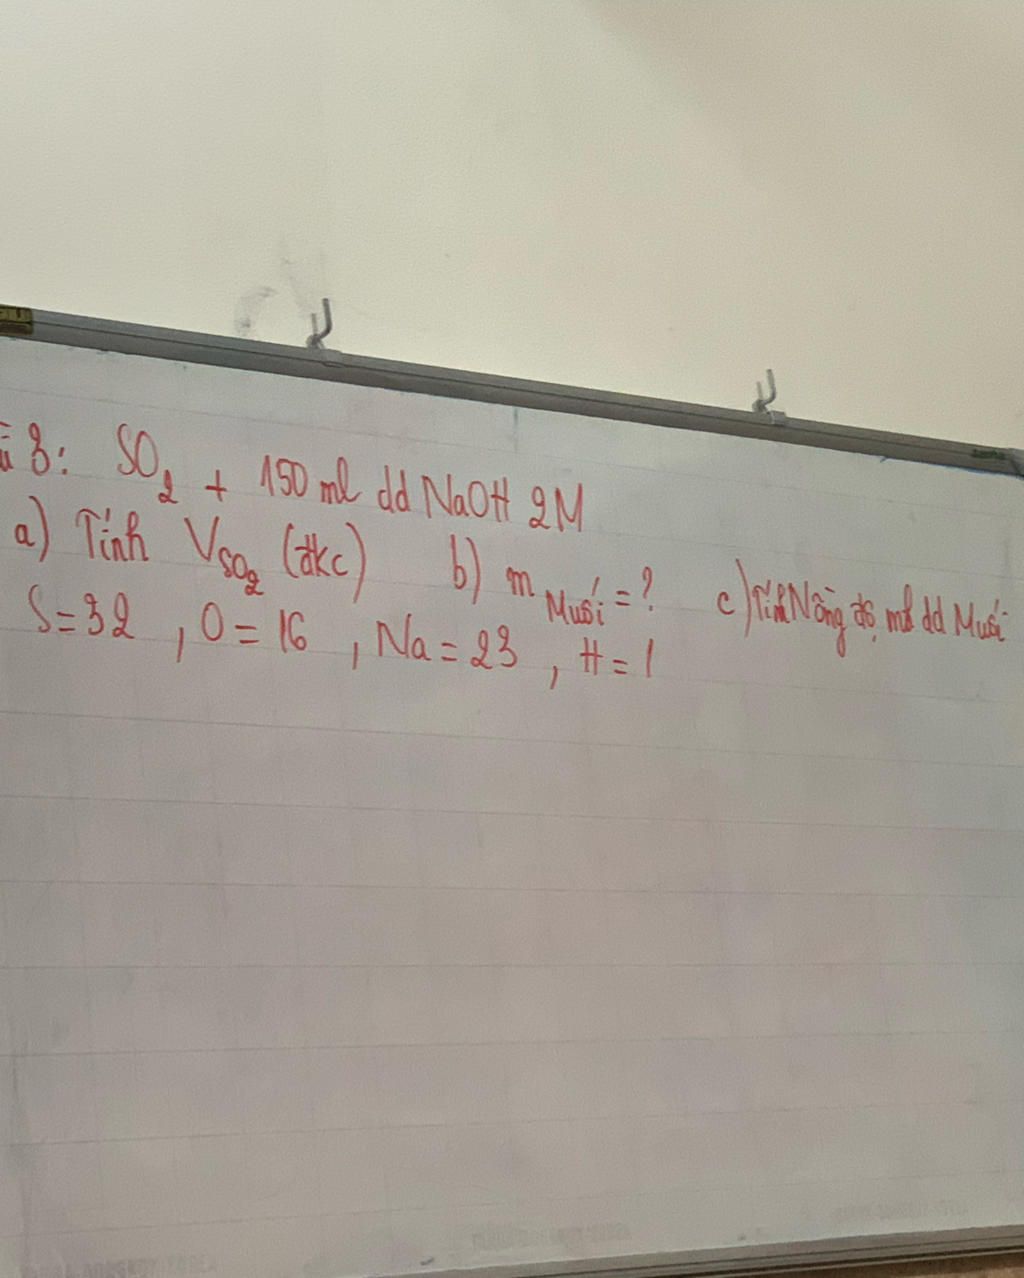 3: SO₂ + 150 ml dd NaOH 2M
a) Tính V SO₂ (đkc) b) m Muối = ? c) Tính Nồng độ mol dd Muối
S = 32 , O = 16 , Na = 23 , H = 1